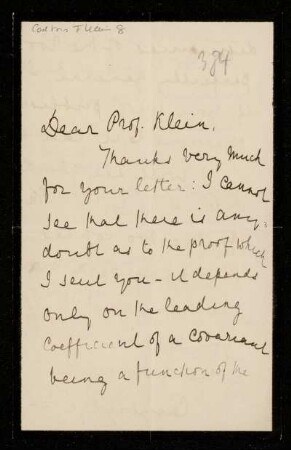 F Klein 8
384
Dear Prof. Klein,
Thanks very much
for your letter: I cannot
see that there is any
doubt as to the proof which
I sent you - it depends
only on the leading
coefficient of a covariant
being a function of the